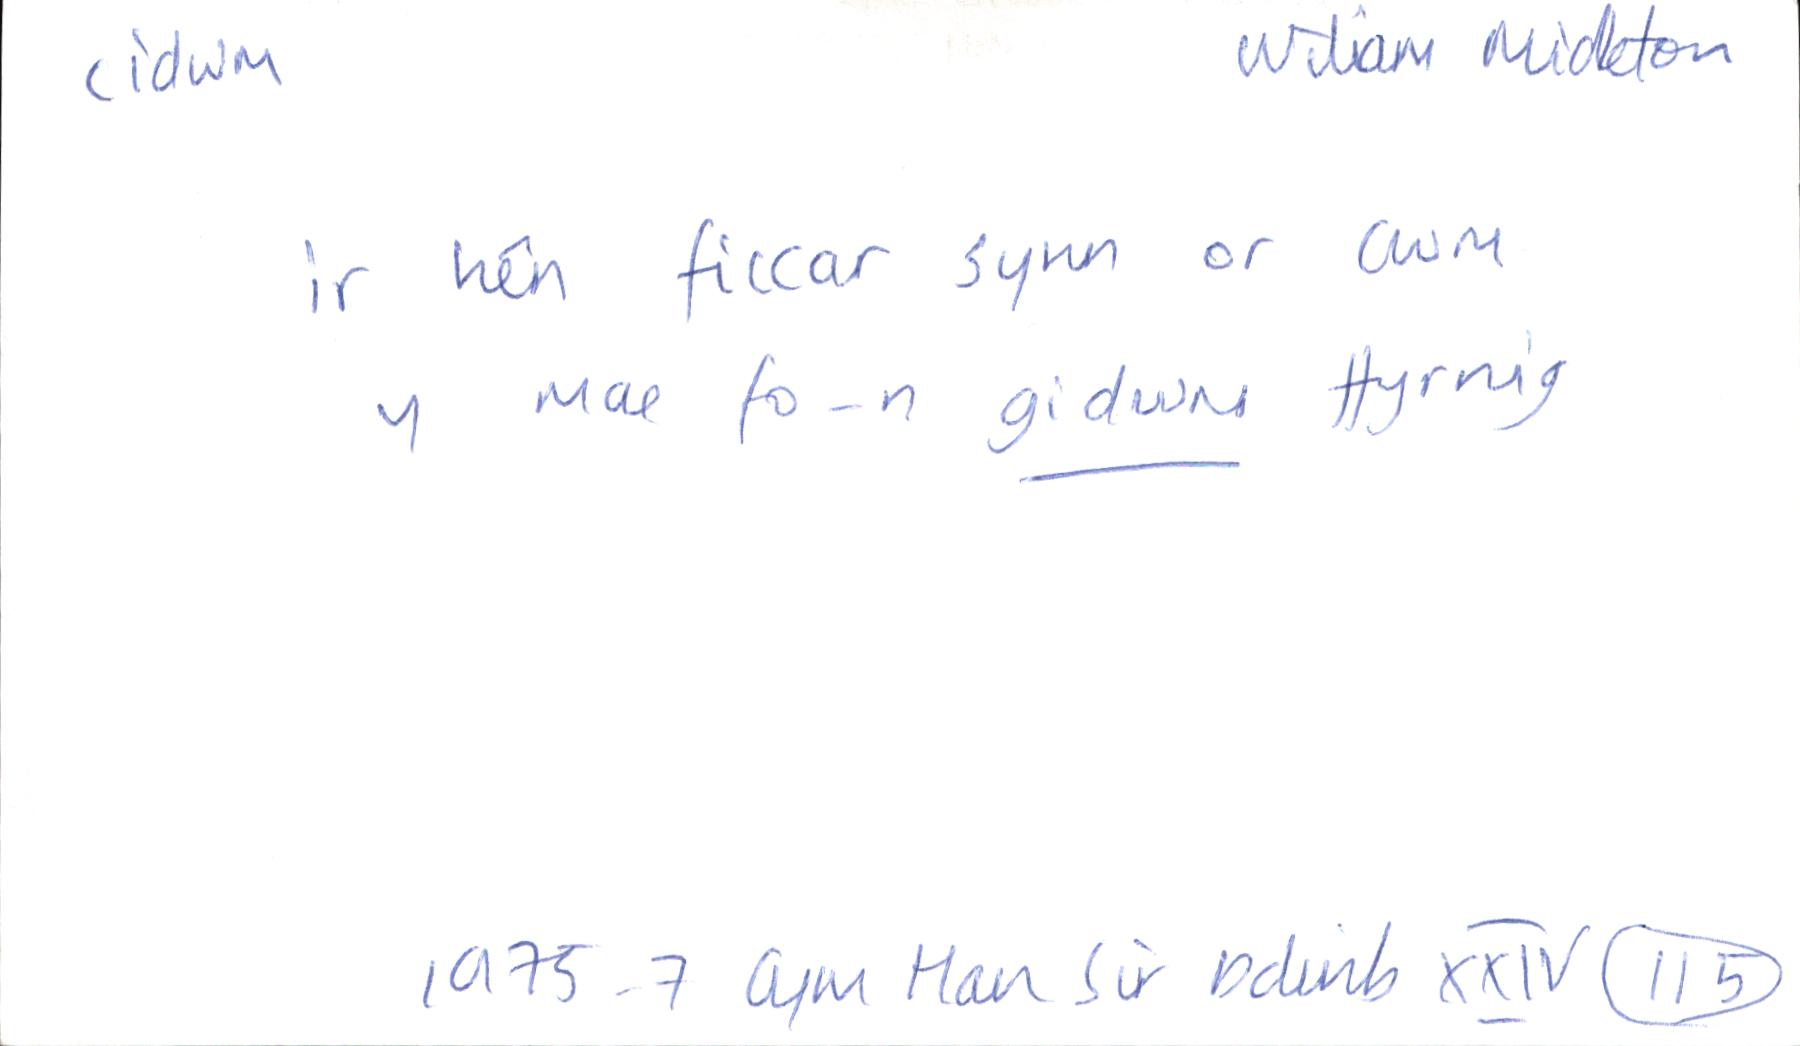 cidwm Wiliam Midleton
ir hên ficcar synn or Cwm
y mae fo-n gidwm ffyrnig
1975-7 Cym Han Sir Ddinb XXIV 115